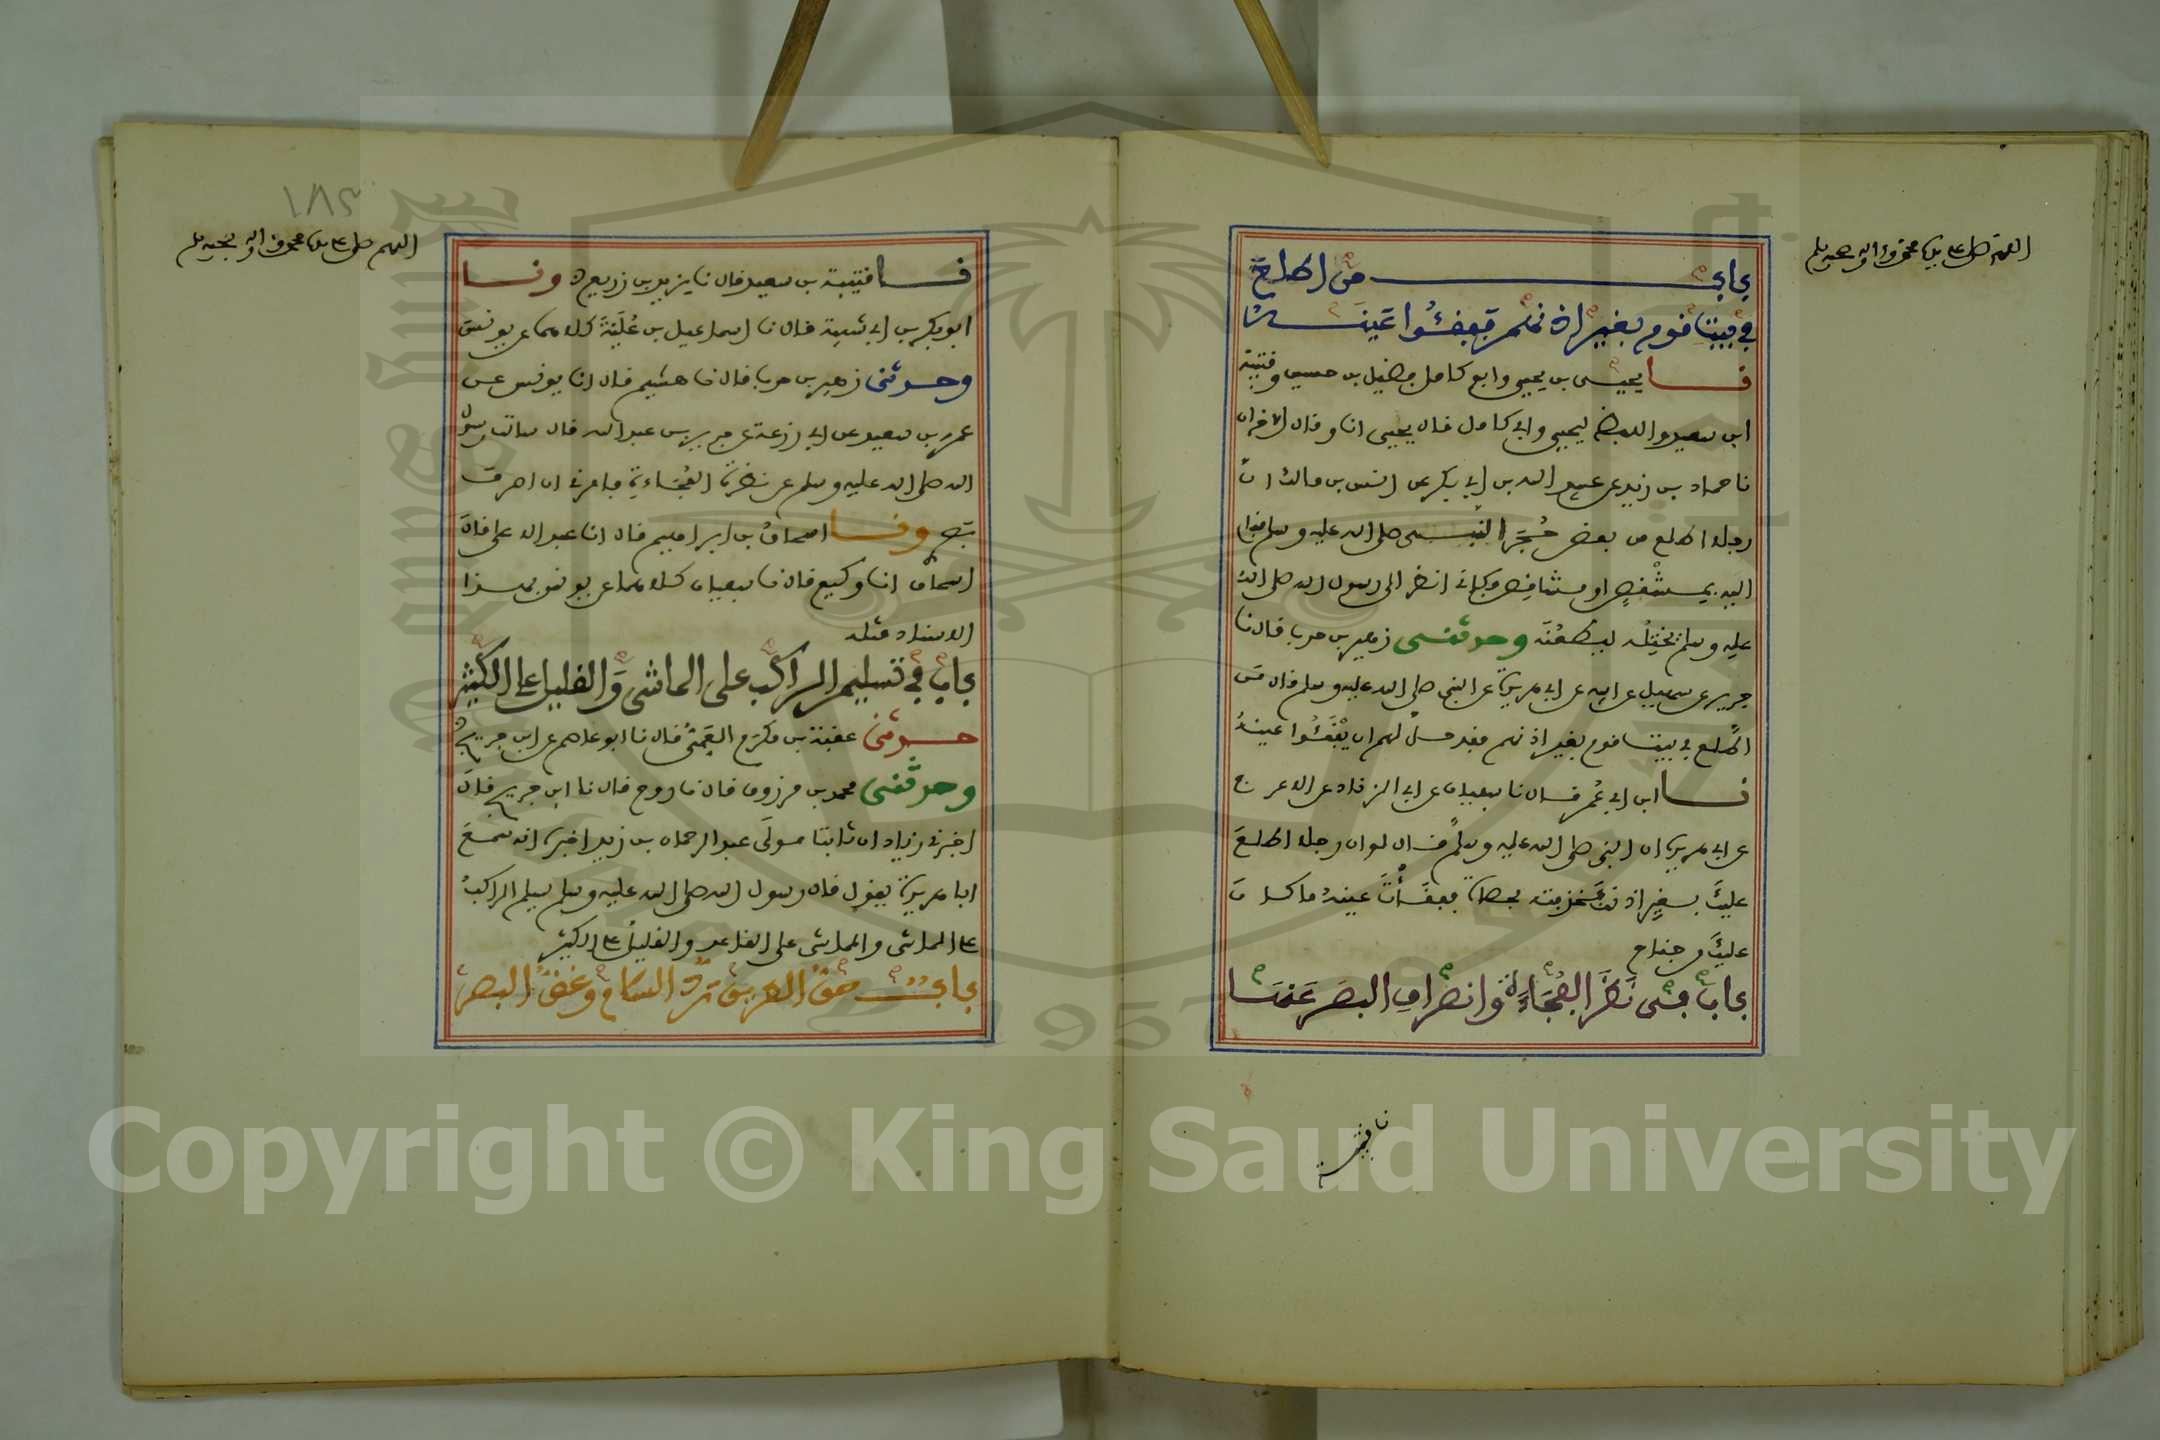 اللهم صل على سيدنا محمد وآله وصحبه وسلم
باب من اطلع
في بيت قوم بغير اذنهم ففقئوا عينه
نا يحيى بن يحيى وابو كامل فضيل بن حسين وقتيبة
ابن سعيد واللفظ ليحيى وابي كامل قال يحيى انا وقال الاخران
نا حماد بن زيد عن عبيد الله بن ابي بكر عن انس بن مالك ان
رجلا اطلع من بعض حجر النبي صلى الله عليه وسلم فقام
اليه بمشقص او مشاقص فكاني انظر الى رسول الله صلى الله
عليه وسلم يختله ليطعنه وحدثني زهير بن حرب قال نا
جرير عن سهيل عن ابيه عن ابي هريرة عن النبي صلى الله عليه وسلم قال من
اطلع في بيت قوم بغير اذنهم فقد حل لهم ان يفقئوا عينه
نا ابن ابي عمر قال نا سفيان عن ابي الزناد عن الاعرج
عن ابي هريرة ان النبي صلى الله عليه وسلم قال لو ان رجلا اطلع
عليك بغير اذن فخذفته بحصاة ففقأت عينه ما كان
عليك من جناح
باب في نظر الفجاءة وانصراف البصر عنها
نا قتيبة
١٨٤
اللهم صل على سيدنا محمد وآله وصحبه وسلم
نا قتيبة بن سعيد قال نا يزيد بن زريع ونا
ابو بكر بن ابي شيبة قال نا اسماعيل بن علية كلاهما عن يونس
وحدثني زهير بن حرب قال نا هشيم قال انا يونس عن
عمرو بن سعيد عن ابي زرعة عن جرير بن عبد الله قال سالت رسول
الله صلى الله عليه وسلم عن نظرة الفجاءة فامرني ان اصرف
بصري ونا اسحاق بن ابراهيم قال انا عبد الاعلى قال
اسحاق انا وكيع قال نا سفيان كلاهما عن يونس بهذا
الاسناد مثله
باب في تسليم الراكب على الماشي والقليل على الكثير
حدثني عقبة بن مكرم العمي قال نا ابو عاصم عن ابن جريج
وحدثني محمد بن مرزوق قال نا روح قال نا ابن جريج قال
اخبرني زياد ان ثابتا مولى عبد الرحمان بن زيد اخبره انه سمع
ابا هريرة يقول قال رسول الله صلى الله عليه وسلم يسلم الراكب
على الماشي والماشي على القاعد والقليل على الكثير
باب حق الطريق رد السلام وغض البصر
Copyright © King Saud University
1957